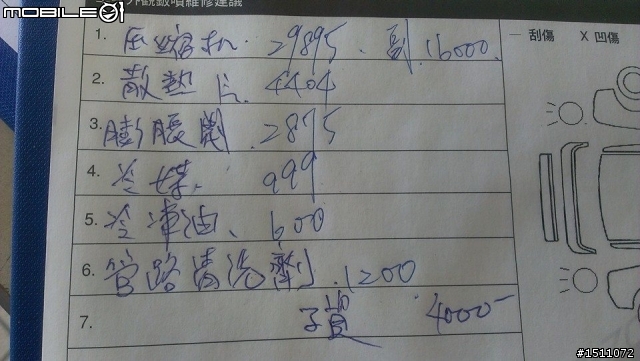 MOBILE01
外觀鈑噴維修建議
1. 压縮机. 29895. 副.16000.
一 刮傷 X 凹傷
2. 散熱片. 4404
3. 膨脹閥. 2875
4. 冷媒. 999
5. 冷凍油、600
6. 管路清洗劑.1200
7. 4000-
#1511072